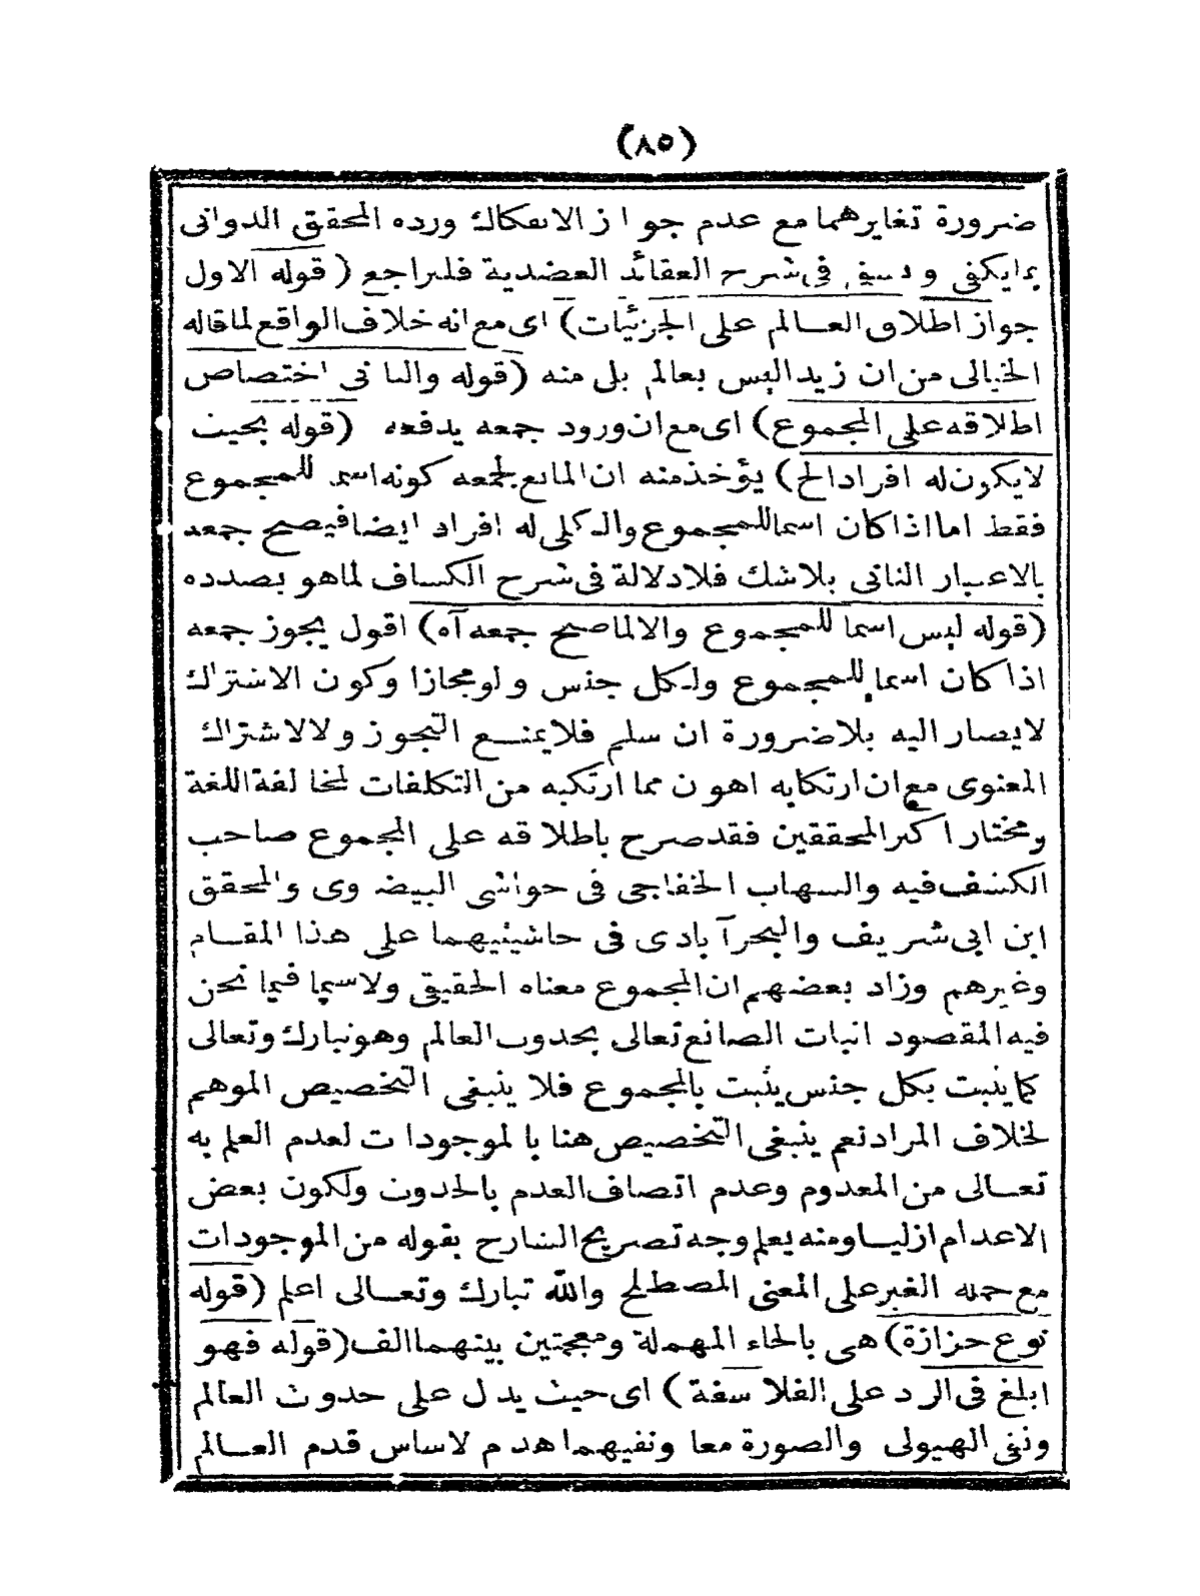 (٨٥)
ضرورة تغايرهما مع عدم جواز الانفكاك ورده المحقق الدوانى
بما يكفى و فى شرح العقائد العضدية فليراجع ( قوله الاول
جواز اطلاق العالم على الجزئيات) اى مع انه خلاف الواقع لما قاله
الخيالى من ان زيدا ليس بعالم بل منه (قوله والثانى اختصاص
اطلاقه على المجموع) اى مع ان ورود جمعه يدفعه (قوله بحيث
لا يكون له افراد الخ) يؤخذ منه ان المانع لجمعه كونه اسما للمجموع
فقط اما اذا كان اسما للمجموع والكلى له افراد ايضا فيصح جمعه
بالاعتبار الثانى بلا شك فلا دلالة فى شرح الكشاف لما هو بصدده
(قوله ليس اسما للمجموع والا لما صح جمعه آه) اقول يجوز جمعه
اذا كان اسما للمجموع ولكل جنس ولو مجازا وكون الاشتراك
لا يصار اليه بلا ضرورة ان سلم فلا يمنع التجوز ولا الاشتراك
المعنوى مع ان ارتكابه اهون مما ارتكبه من التكلفات لمخالفة اللغة
ومختار اكثر المحققين فقد صرح باطلاقه على المجموع صاحب
الكشف فيه والشهاب الخفاجى فى حواشى البيضاوى والمحقق
ابن ابى شريف والبحرآبادى فى حاشيتيهما على هذا المقام
وغيرهم وزاد بعضهم ان المجموع معناه الحقيقى ولاسيما فيما نحن
فيه المقصود اثبات الصانع تعالى بحدوث العالم وهو تبارك وتعالى
كما يثبت بكل جنس يثبت بالمجموع فلا ينبغى التخصيص الموهم
لخلاف المراد نعم ينبغى التخصيص هنا بالموجودات لعدم العلم به
تعالى من المعدوم وعدم اتصاف العدم بالحدوث ولكون بعض
الاعدام ازليا ومنه يعلم وجه تصريح الشارح بقوله من الموجودات
مع حمله الغير على المعنى المصطلح والله تبارك وتعالى اعلم (قوله
نوع حزازة) هى بالحاء المهملة ومعجمتين بينهما الف (قوله فهو
ابلغ فى الرد على الفلاسفة) اى حيث يدل على حدوث العالم
ونفى الهيولى والصورة معا ونفيهما هدم لاساس قدم العالم